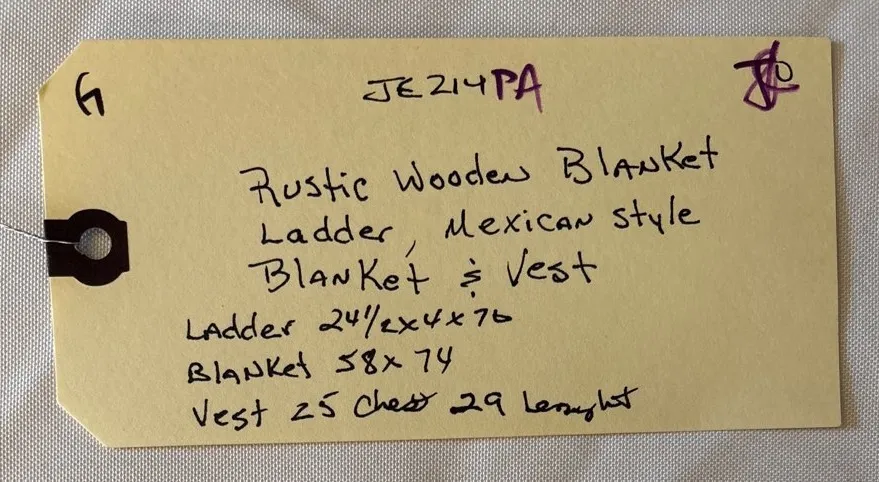 G
JE214PA
Rustic Wooden Blanket
Ladder, Mexican Style
Blanket & Vest
Ladder 24 1/2 x 4 x 76
Blanket 58 x 74
Vest 25 Chest 29 Lenght